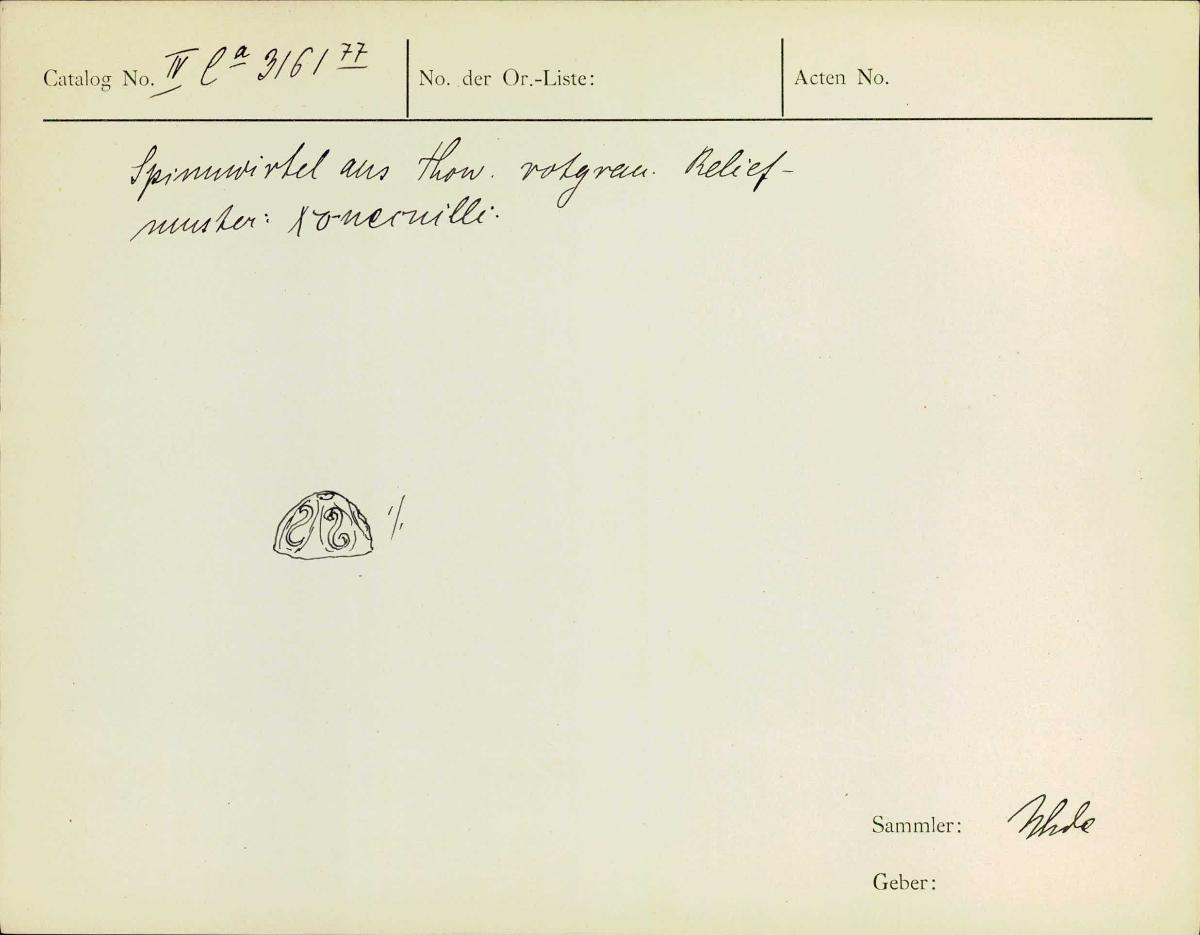 Catalog No. IV Ca 3161 77
No. der Or.-Liste:
Acten No.
Spinnwirtel aus Thon. rotgrau. Relief-
muster: xonecuilli.
1/1
Sammler: Uhde
Geber: